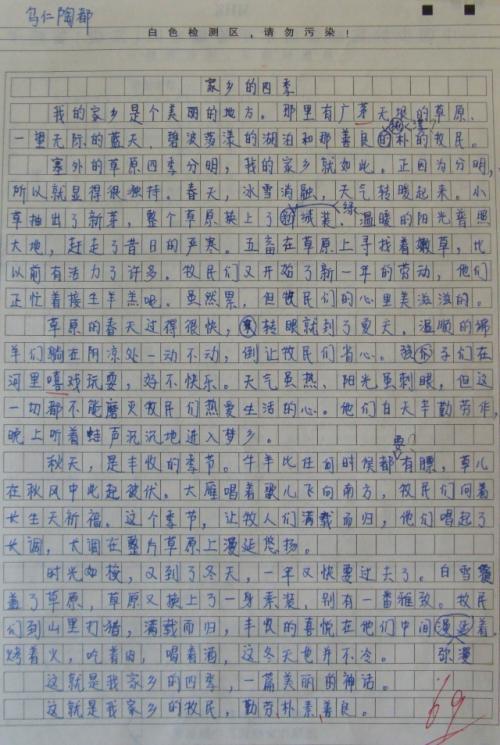 乌仁陶都
白色检测区,请勿污染!
家乡的四季
我的家乡是个美丽的地方。那里有广茅天垠的草原、
一望无际的蓝天、碧波荡漾的湖泊和那善良的朴的牧民。
塞外的草原四季分明,我的家乡就如此。正因为分明,
所以就显得很独特。春天,冰雪消融,天气转暖起来。小
绿
草抽出了新芽,整个草原换上了的絨装。温暖的阳光普照
大地,赶走了昔日的严寒。五畜在草原上寻找着嫩草,比
以前有活力了许多。牧民们又开始了新一年的劳动,他们
正忙着接生羊羔呢。虽然累,但牧民们的心里美滋滋的。
草原的春天过得很快,转眼就到了夏天。温顺的绵
羊们躺在阴凉处一动不动,倒让牧民们省心。孩子们在
河里嘻戏玩耍,好不快乐。天气虽热、阳光虽刺眼,但这
一切都不能磨灭牧民们热爱生活的心。他们白天辛勤劳作,
晚上听着蛙声沉沉地进入梦乡。
要
秋天,是丰收的季节。牛羊比任何时候都有膘,草儿
在秋风中此起彼伏。大雁唱着歌儿飞向南方,牧民们向着
长生天祈福。这个季节,让牧人们满载而归,他们唱起了
长调,长调在整片草原上漫延悠扬。
时光如梭,又到了冬天,一年又快要过去了。白雪覆
盖了草原,草原又换上了一身素装,别有一番雅致。牧民
们到山里打猎,满载而归,丰收的喜悦在他们中间漫延着。
烤着火,吃着肉,喝着酒,这冬天也并不冷。
弥漫
这就是我家乡的四季,一篇美丽的神话。
这就是我家乡的牧民,勤劳、朴素、善良。
69